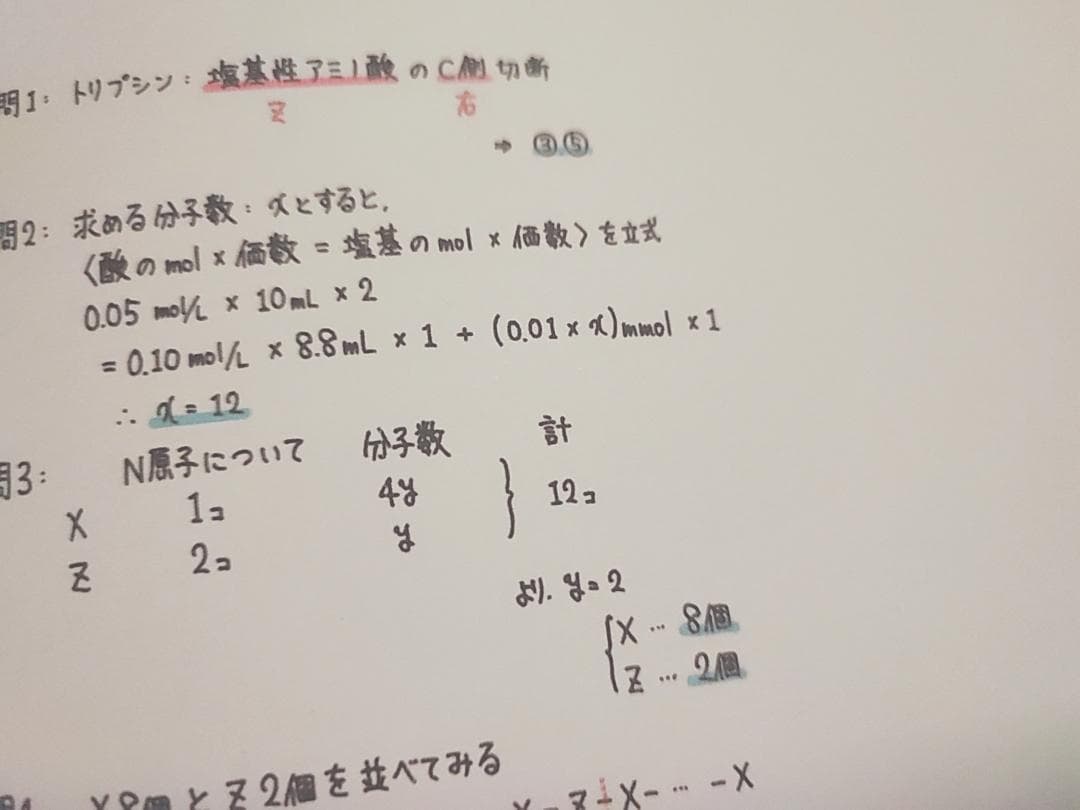 問1: トリプシン: 塩基性アミノ酸 の C側 切断
Z 右
➡ ③⑤
問2: 求める分子数: xとすると,
〈酸のmol × 価数 = 塩基のmol × 価数〉を立式
0.05 mol/L × 10mL × 2
= 0.10 mol/L × 8.8mL × 1 + (0.01 × x)mmol × 1
∴ x = 12
問3: N原子について 分子数 計
X 1コ 4y } 12コ
Z 2コ y
より, y = 2
{ X … 8個
Z … 2個
X8個とZ2個を並べてみる
X-Z-X-…-X